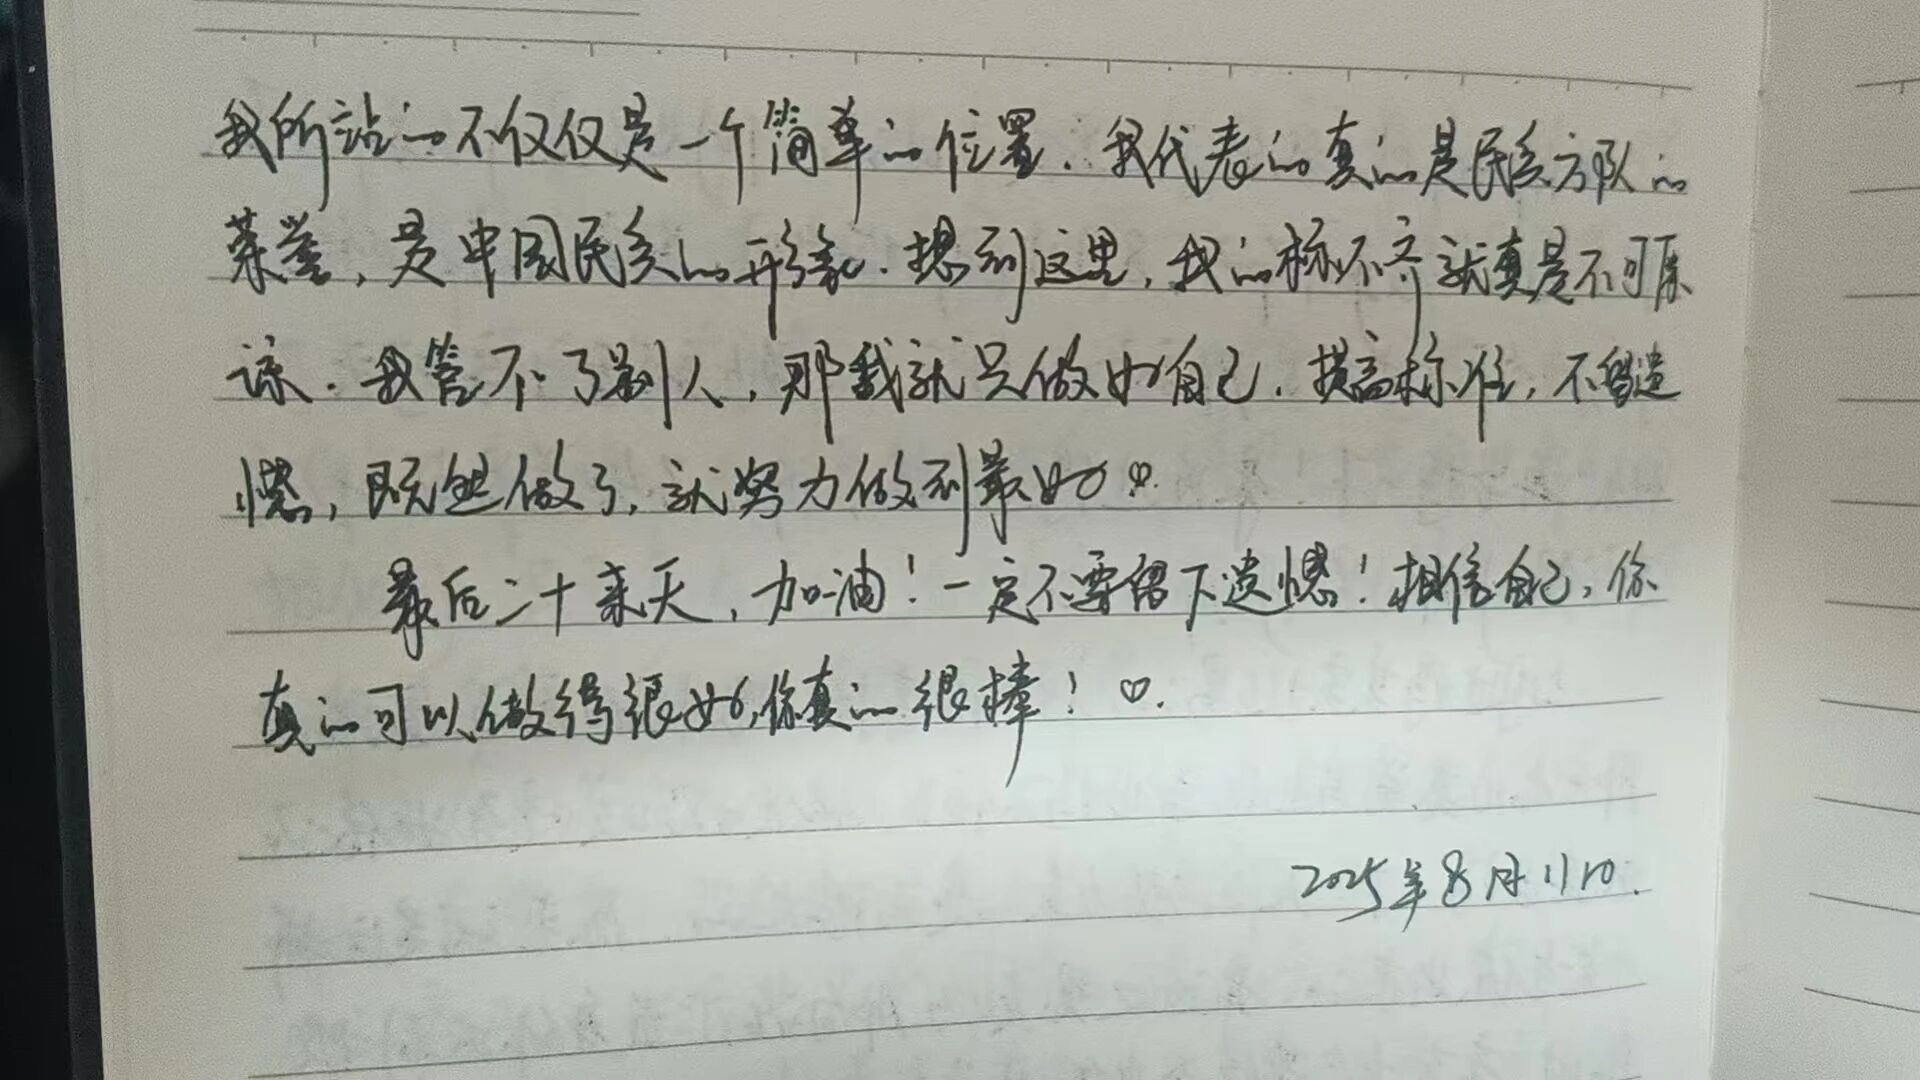 我所站的不仅仅是一个简单的位置.我代表的真的是民兵方队的
荣誉,是中国民兵的形象.想到这里,我的标不齐就真是不可原
谅.我管不了别人,那我就只做好自己.提高标准,不留遗
憾,既然做了,就努力做到最好♡.
最后二十来天,加油!一定不要留下遗憾!相信自己,你
真的可以做得很好,你真的很棒!♡.
2025年8月11日.